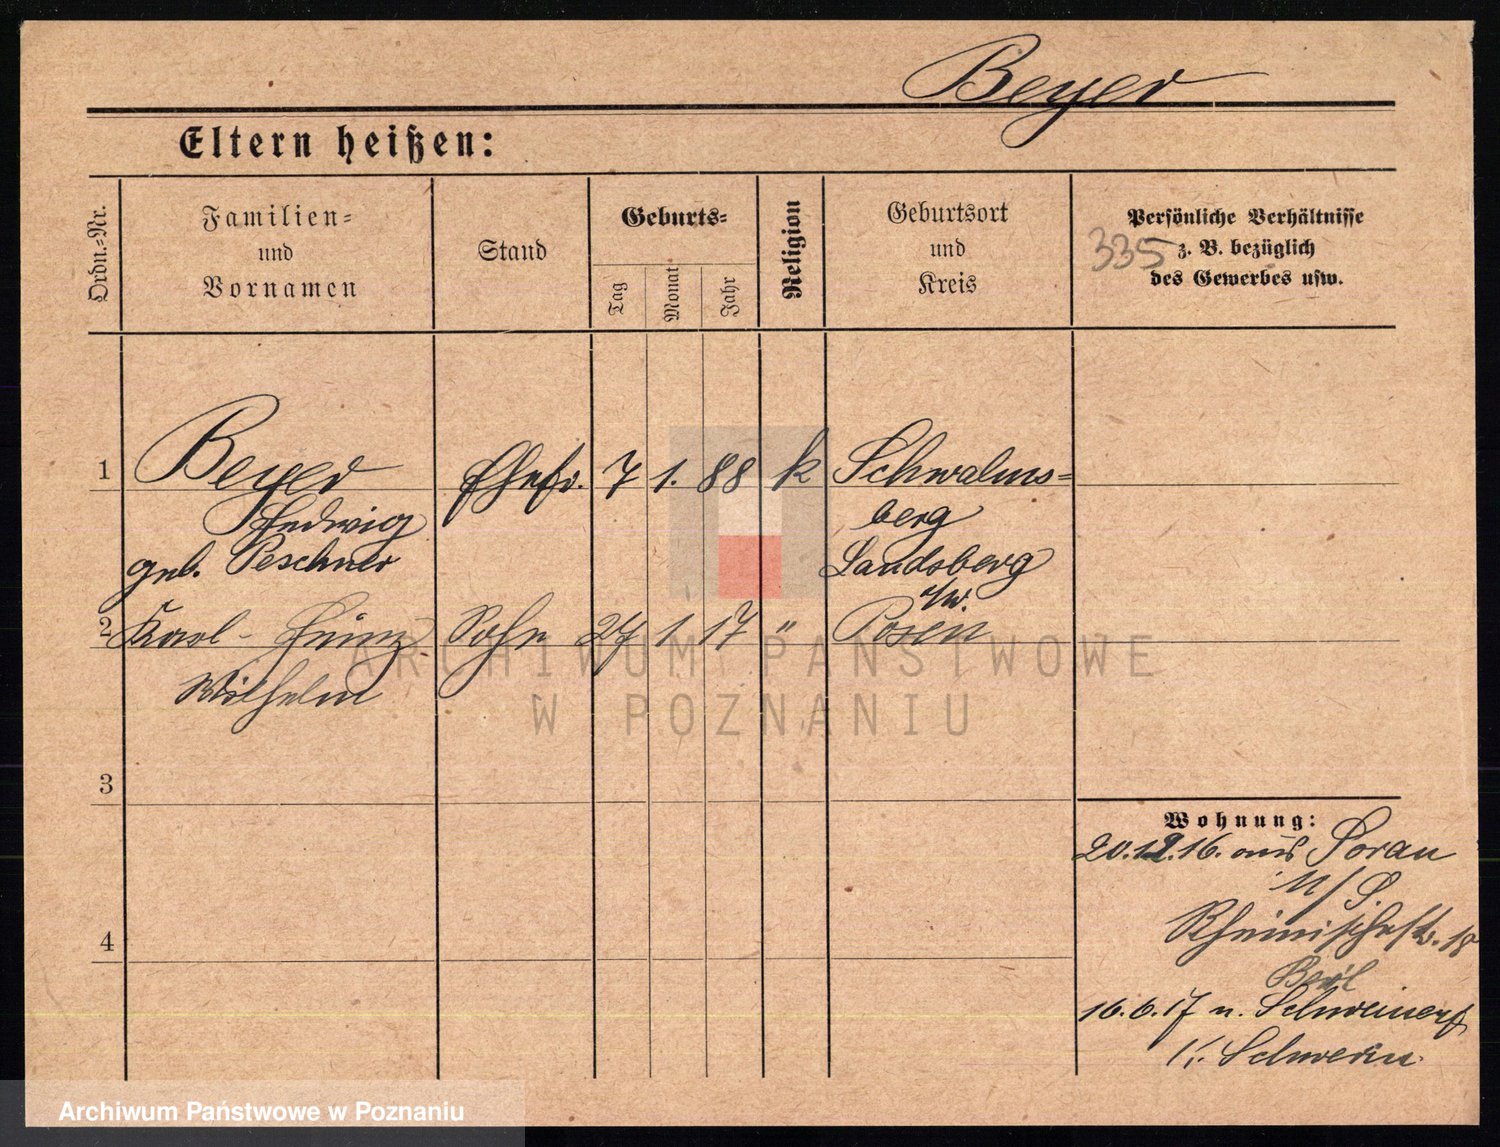 Beyer
Eltern heißen:
Ordn.-Nr.
Familien-
und
Vornamen
Stand
Geburts-
Tag
Monat
Jahr
Religion
Geburtsort
und
Kreis
Persönliche Verhältnisse
z. B. bezüglich
des Gewerbes usw.
335
1 Beyer Ehefr. 7 1. 88 k Schwalms-
Hedwig berg
geb. Peschner Landsberg
a/W.
2 Karl-Heinz Sohn 27 1. 17 " Posen
Wilhelm
3
4
Wohnung:
20.12.16. aus Sorau
N/L.
Rheinischestr. 18
16.6.17 n. Schweinert
K. Schwerin.
ARCHIWUM PAŃSTWOWE
W POZNANIU
Archiwum Państwowe w Poznaniu